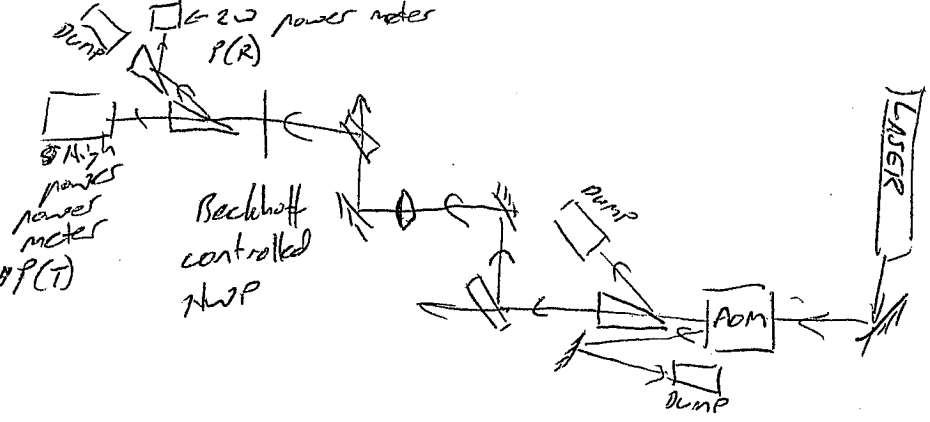 DUMP
← 2W power meter
P(R)
High
power
power
meter
P(T)
Beckhoff
controlled
HWP
DUMP
AOM
DUMP
LASER